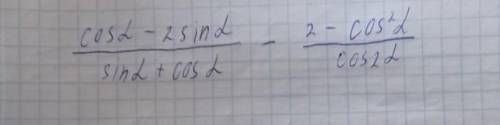 (cosα - 2sinα)/(sinα + cosα) - (2 - cos²α)/(cos2α)